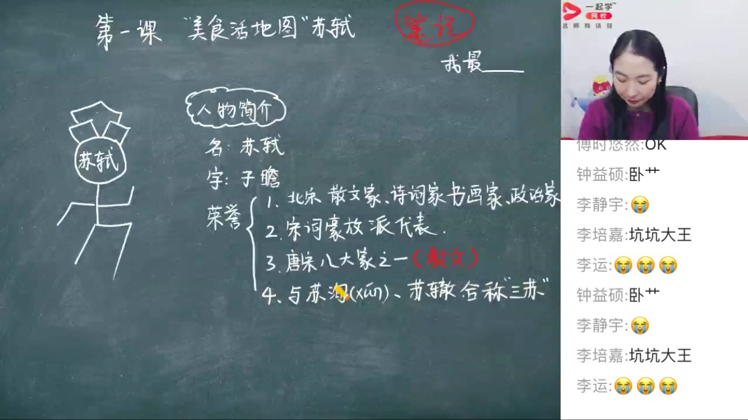 第一课 "美食活地图"苏轼
笔记
我最____
人物简介
苏轼
名：苏轼
字：子瞻
荣誉
1. 北宋 散文家、诗词家 书画家、政治家
2. 宋词豪放派代表.
3. 唐宋八大家之一(散文)
4. 与苏洵(xún)、苏辙 合称"三苏"
一起学
网校
名师陪谈娃
傅时悠然:OK
钟益硕:卧艹
李静宇:😭
李培嘉:坑坑大王
李运:😭😭😭
钟益硕:卧艹
李静宇:😭
李培嘉:坑坑大王
李运:😭😭😭